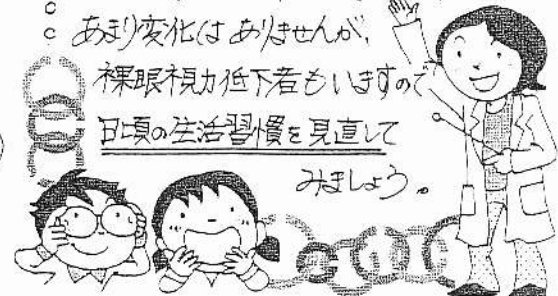 あまり変化はありませんが、
裸眼視力低下者もいますので
日頃の生活習慣を見直して
みましょう。